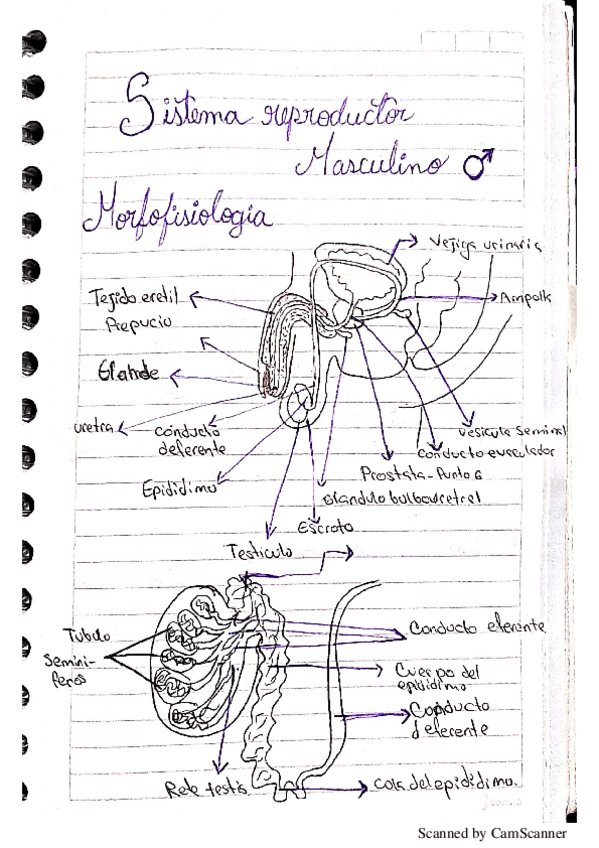 Sistema reproductor
Masculino ♂
Morfofisiologia
Vejiga urinaria
Tejido eretil
Ampolla
Prepucio
Glande
uretra
conducto
deferente
Vesicula Seminal
Conducto eyaculador
Prostata - Punto G
Epididimo
Glandula bulbouretral
Escroto
Testiculo
Tubulo
Semini-
feros
Conducto eferente
Cuerpo del
epididimo
Conducto
deferente
Rete testis
Cola del epididimo.
Scanned by CamScanner